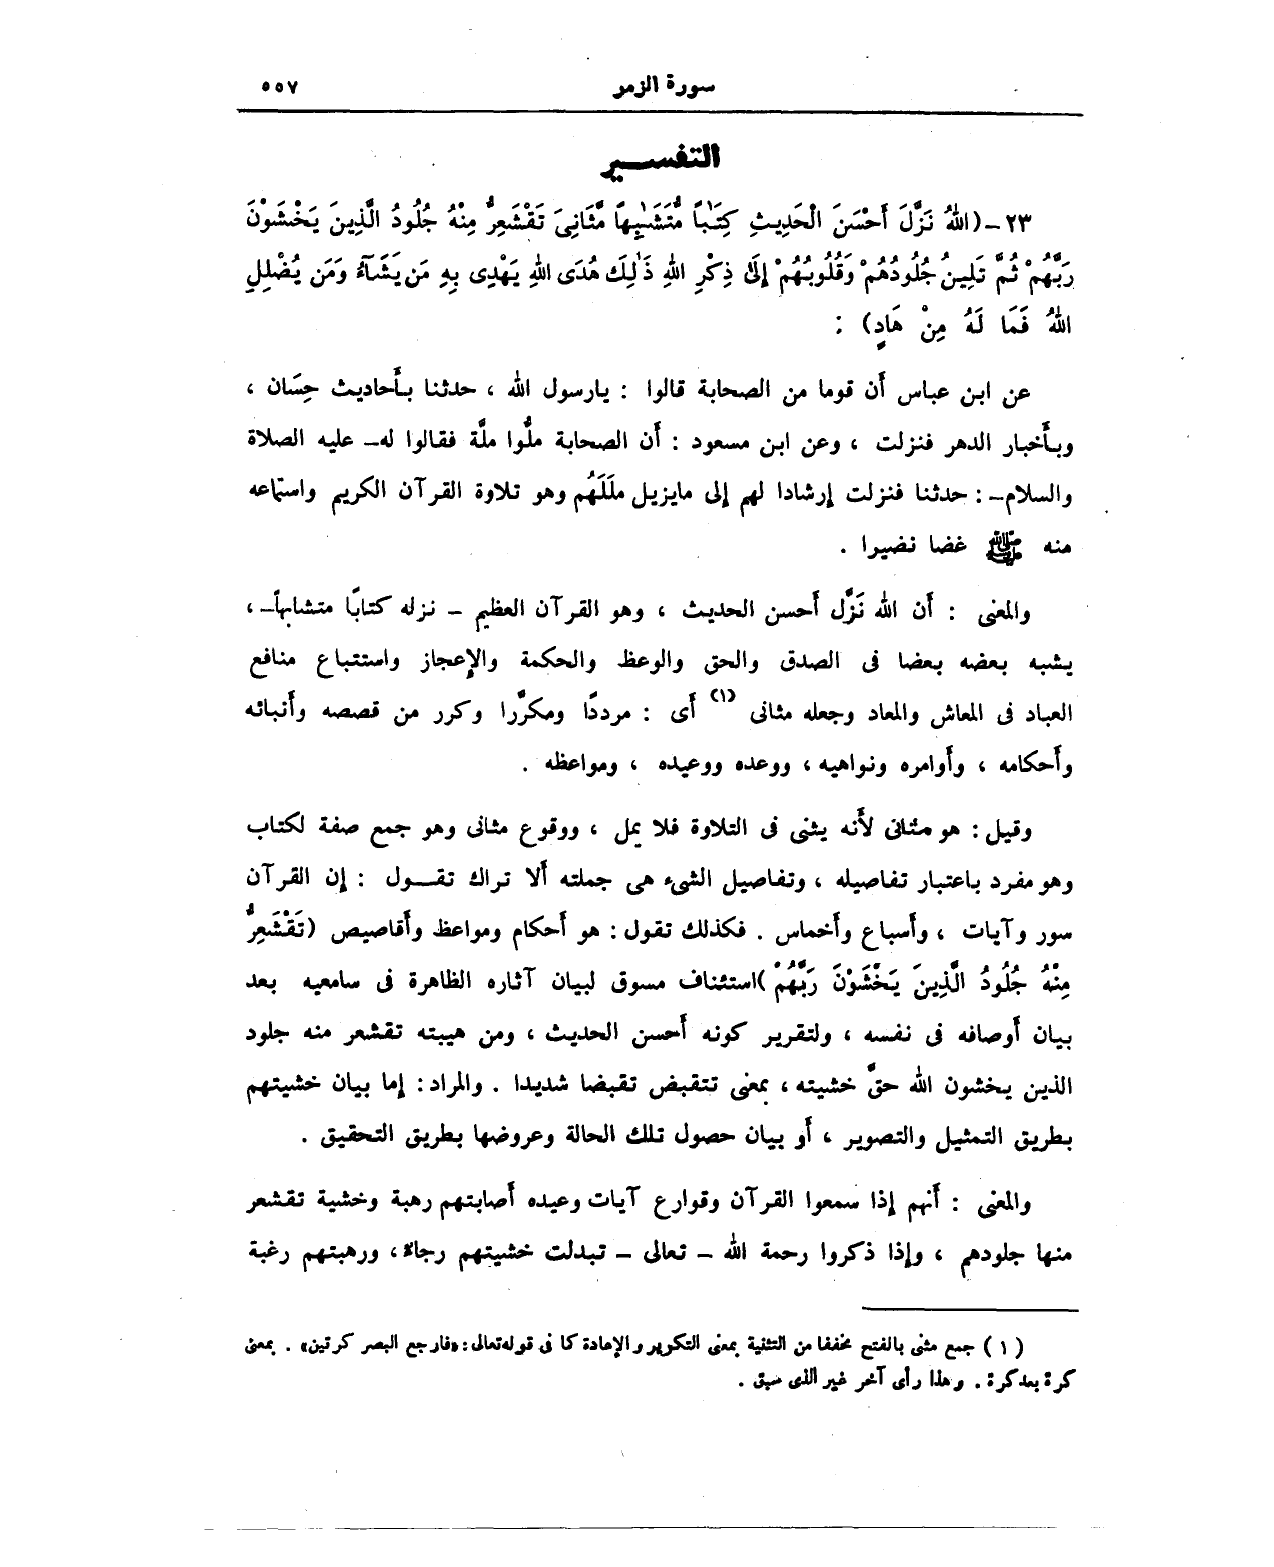 سورة الزمر ٥٥٧
التفسير
٢٣-(اللهُ نَزَّلَ أَحْسَنَ الْحَدِيثِ كِتَٰبًا مُّتَشَٰبِهًا مَّثَانِىَ تَقْشَعِرُّ مِنْهُ جُلُودُ الَّذِينَ يَخْشَوْنَ
رَبَّهُمْ ثُمَّ تَلِينُ جُلُودُهُمْ وَقُلُوبُهُمْ إِلَىٰ ذِكْرِ اللهِ ذَٰلِكَ هُدَى اللهِ يَهْدِى بِهِ مَن يَشَآءُ وَمَن يُضْلِلِ
اللهُ فَمَا لَهُ مِنْ هَادٍ) :
عن ابن عباس أن قوما من الصحابة قالوا : يارسول الله ، حدثنا بأحاديث حِسَان ،
وبأخبار الدهر فنزلت ، وعن ابن مسعود : أن الصحابة ملُّوا ملَّة فقالوا له- عليه الصلاة
والسلام- : حدثنا فنزلت إرشادا لهم إلى مايزيل ملَلَهُم وهو تلاوة القرآن الكريم واستماعه
منه ﷺ غضا نضيرا .
والمعنى : أن الله نَزَّل أحسن الحديث ، وهو القرآن العظيم - نزله كتابًا متشابهاً- ،
يشبه بعضه بعضا فى الصدق والحق والوعظ والحكمة والإعجاز واستتباع منافع
العباد فى المعاش والمعاد وجعله مثانى (١) أى : مرددًا ومكرَّرا وكرر من قصصه وأنبائه
وأحكامه ، وأوامره ونواهيه ، ووعده ووعيده ، ومواعظه .
وقيل : هو مثانى لأنه يثنى فى التلاوة فلا يمل ، ووقوع مثانى وهو جمع صفة لكتاب
وهو مفرد باعتبار تفاصيله ، وتفاصيل الشىء هى جملته ألا تراك تقـــول : إن القرآن
سور وآيات ، وأسباع وأخماس . فكذلك تقول : هو أحكام ومواعظ وأقاصيص (تَقْشَعِرُّ
مِنْهُ جُلُودُ الَّذِينَ يَخْشَوْنَ رَبَّهُمْ)استئناف مسوق لبيان آثاره الظاهرة فى سامعيه بعد
بيان أوصافه فى نفسه ، ولتقرير كونه أحسن الحديث ، ومن هيبته تقشعر منه جلود
الذين يخشون الله حقَّ خشيته ، بمعنى تتقبض تقبضا شديدا . والمراد : إما بيان خشيتهم
بطريق التمثيل والتصوير ، أو بيان حصول تلك الحالة وعروضها بطريق التحقيق .
والمعنى : أنهم إذا سمعوا القرآن وقوارع آيات وعيده أصابتهم رهبة وخشية تقشعر
منها جلودهم ، وإذا ذكروا رحمة الله - تعالى - تبدلت خشيتهم رجاءً ، ورهبتهم رغبة
(١) جمع مثنى بالفتح مخففا من التثنية بمعنى التكرير والإعادة كما فى قوله تعالى : «فارجع البصر كرتين» . بمعنى
كرة بعد كرة . وهذا رأى آخر غير الذى سبق .